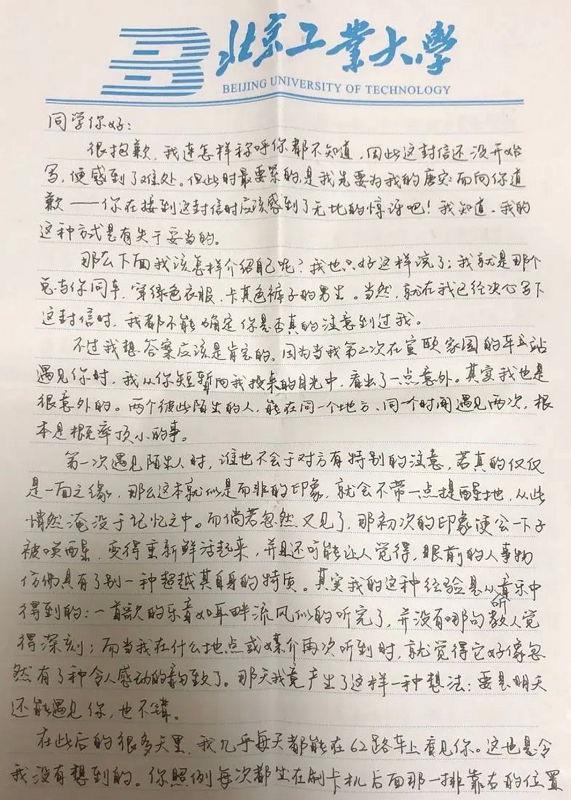 北京工業大學
BEIJING UNIVERSITY OF TECHNOLOGY
同学你好：
很抱歉，我连怎样称呼你都不知道，因此这封信还没开始
写，便感到了难处。但此时最要紧的，是我先要为我的唐突而向你道
歉——你在接到这封信时应该感到了无比的惊讶吧！我知道，我的
这种方式是有失于妥当的。
那么下面我该怎样介绍自己呢？我也只好这样说了：我就是那个
总与你同车，穿绿色衣服、卡其色裤子的男生。当然，就在我已经决心写下
这封信时，我都不能确定你是否真的注意到过我。
不过我想答案应该是肯定的。因为当我第二次在宣颐家园的车站
遇见你时，我从你短暂向我投来的目光中，看出了一点意外。其实我也是
很意外的。两个彼此陌生的人，能在同一个地方、同一个时间遇见两次，根
本是概率颇小的事。
第一次遇见陌生人时，谁也不会于对方有特别的注意，若真的仅仅
是一面之缘，那么这本就似是而非的印象，就会不带一点提醒地，从此
悄然淹没于记忆之中。而倘若忽然又见了，那初次的印象便会一下子
被唤醒，变得重新鲜活起来，并且还可能让人觉得，眼前的人事物
仿佛具有了别一种超越其自身的特质。其实我的这种经验是从听音乐中
得到的：一首歌的乐音如耳畔流风似的听完了，并没有哪句教人觉
得深刻；而当我在什么地点或媒介再次听到时，就觉得它好像忽
然有了种令人感动的韵致了。那天我竟产生了这样一种想法：要是明天
还能遇见你，也不错。
在此后的很多天里，我几乎每天都能在62路车上看见你。这也是令
我没有想到的。你照例每次都坐在刷卡机后面那一排靠右的位置